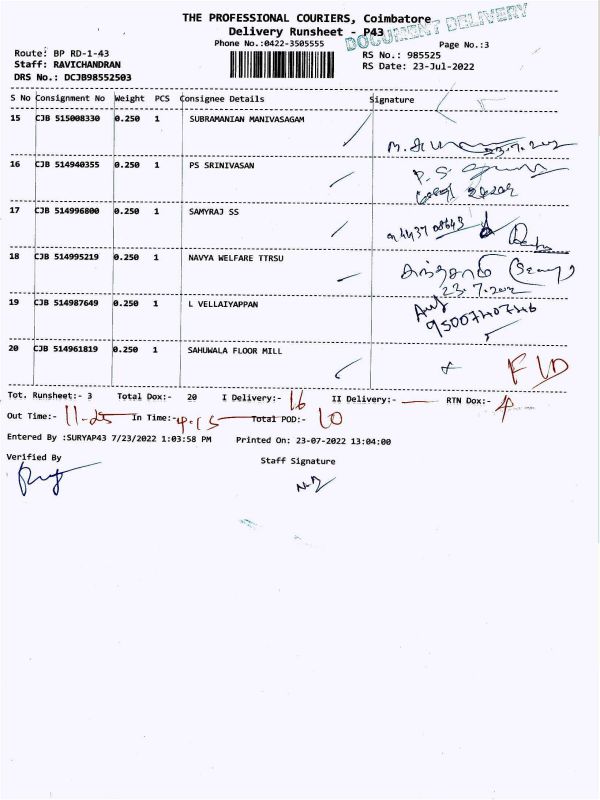 THE PROFESSIONAL COURIERS, Coimbatore
Delivery Runsheet - P43
DOCUMENT DELIVERY
Phone No.:0422-3505555
Page No.:3
Route: BP RD-1-43
RS No.: 985525
Staff: RAVICHANDRAN
RS Date: 23-Jul-2022
DRS No.: DCJB98552503
S No Consignment No Weight PCS Consignee Details Signature
15 CJB 515008330 0.250 1 SUBRAMANIAN MANIVASAGAM
16 CJB 514940355 0.250 1 PS SRINIVASAN
17 CJB 514996800 0.250 1 SAMYRAJ SS
18 CJB 514995219 0.250 1 NAVYA WELFARE TTRSU
23.7.202
19 CJB 514987649 0.250 1 L VELLAIYAPPAN
20 CJB 514961819 0.250 1 SAHUWALA FLOOR MILL
Tot. Runsheet:- 3 Total Dox:- 20 I Delivery:- 16 II Delivery:- — RTN Dox:- 4
Out Time:- 11-25 In Time:- 4.15 Total POD:- 10
Entered By :SURYAP43 7/23/2022 1:03:58 PM Printed On: 23-07-2022 13:04:00
Verified By
Staff Signature